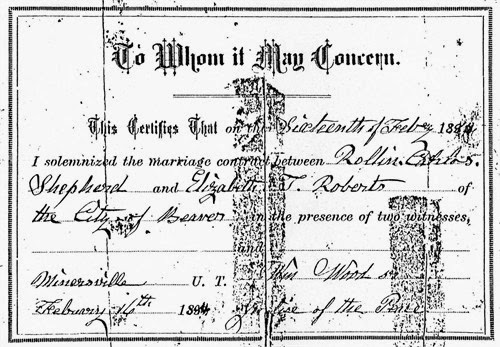 To Whom it May Concern.
This Certifies That on the Sixteenth of Feby
I solemnized the marriage contract between Rollin
Shepherd and Elizabeth T. Roberts of
the City of Beaver in the presence of two witnesses,
and
Minersville U. T. Wm Wood
Febuary 16th of the Peace